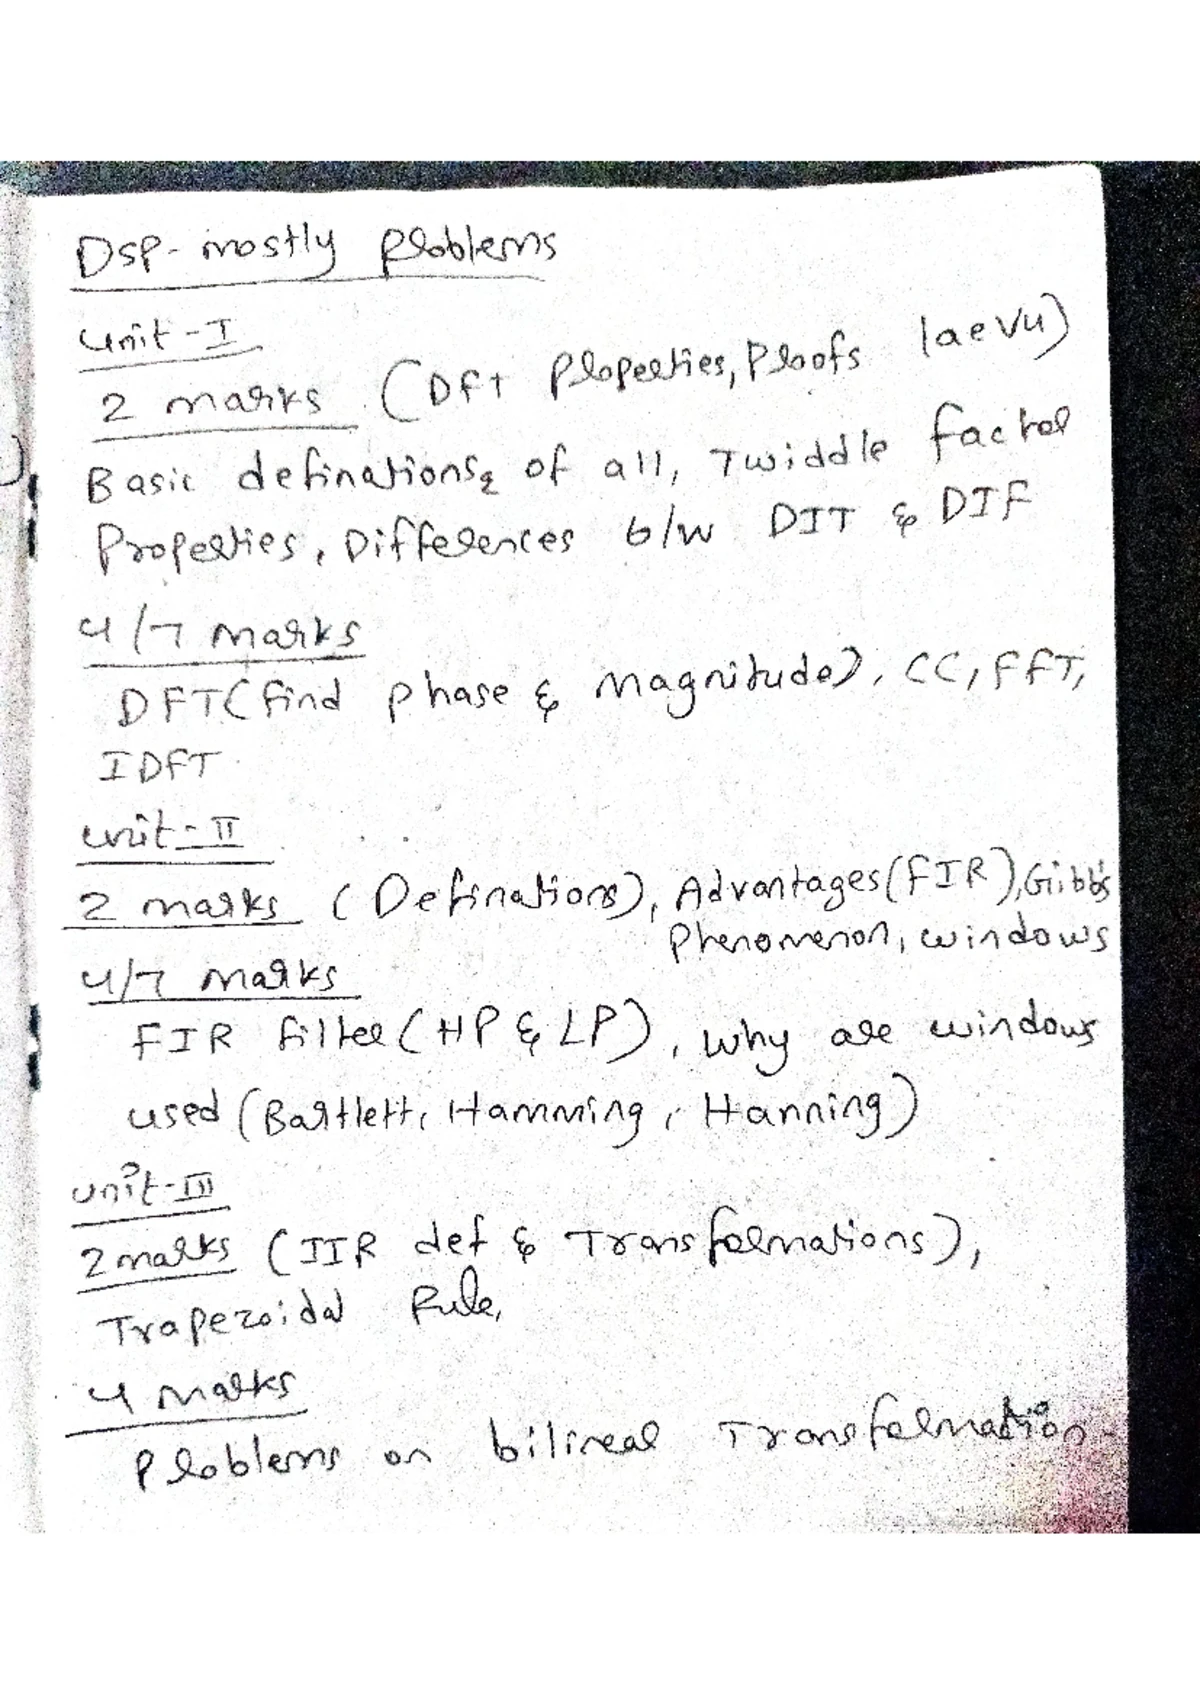 DSP- mostly problems
Unit - I
2 marks (DFT Properties, Proofs laevu)
Basic definations of all, Twiddle factor
Properties, Differences b/w DIT & DIF
4/7 marks
DFT(find phase & magnitude), CC, FFT,
IDFT.
unit - II
2 marks (Definations), Advantages(FIR), Gibb's
Phenomenon, windows
4/7 marks
FIR filter (HP & LP), why are windows
used (Bartlett, Hamming, Hanning)
unit-III
2 marks (IIR def & Transformations),
Trapezoidal Rule,
4 marks
Problems on bilinear Transformation.